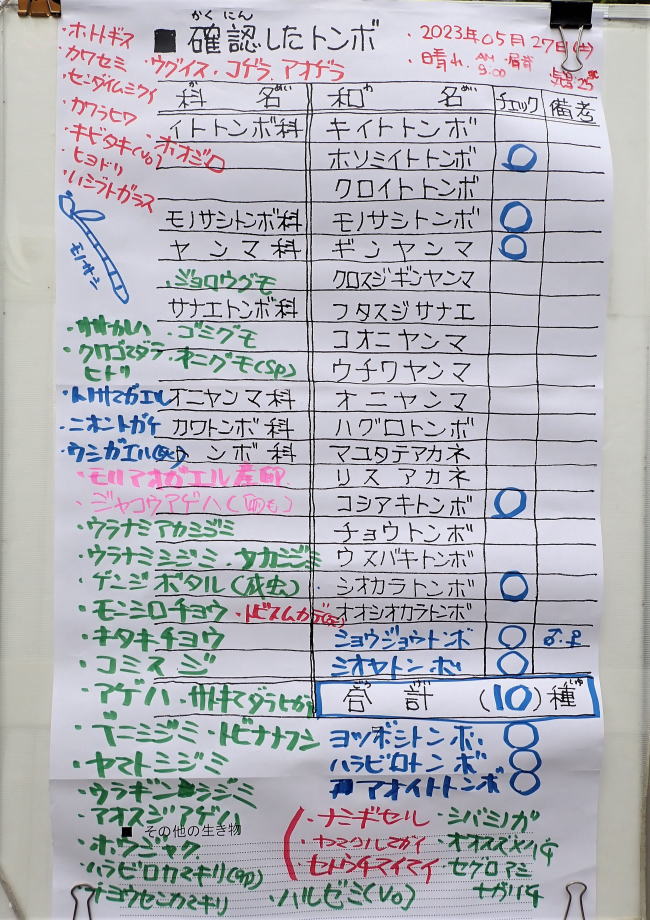 かくにん
■ 確認したトンボ
・2023年05月27日(土)
・晴れ. AM 9:00
25℃
・ホトトギス
・カワセミ ・ウグイス・コゲラ. アオゲラ
・カワラヒワ
・キビタキ(Vo) ・ホオジロ
・ヒヨドリ
・ハシブトガラス
モノサシ
科名 和名 チェック 備考
イトトンボ科 キイトトンボ
ホソミイトトンボ ○
クロイトトンボ
モノサシトンボ科 モノサシトンボ ○
ヤンマ科 ギンヤンマ ○
・ジョロウグモ クロスジギンヤンマ
サナエトンボ科 フタスジサナエ
・ゴミグモ コオニヤンマ
ウチワヤンマ
オニヤンマ科 オニヤンマ
・ニホントカゲ カワトンボ科 ハグロトンボ
・ウシガエル トンボ科 マユタテアカネ
・モリアオガエル産卵 リスアカネ
・ジャコウアゲハ(卵も) コシアキトンボ ○
・ウラナミアカシジミ チョウトンボ
・ウラナミシジミ ・アカシジミ ウスバキトンボ
・ゲンジボタル(成虫) シオカラトンボ ○
・モンシロチョウ ・トビズムカデ オオシオカラトンボ
・キタキチョウ ショウジョウトンボ ○ ♂.♀
・コミスジ シオヤトンボ ○
・アゲハ ・サトキマダラヒカゲ 合計 (10)種
・ベニシジミ ・トビナナフシ ヨツボシトンボ. ○
・ヤマトシジミ ハラビロトンボ ○
・ウラギンシジミ アオイトトンボ ○
・アオスジアゲハ ・ナミギセル ・シバミノガ
■ その他の生き物
・ホウジャク ・ヤマクルマガイ ・オオスズメバチ
・ハラビロカマキリ ・セトウチマイマイ ・セグロアシナガバチ
・チョウセンカマキリ ・ハルゼミ(Vo)